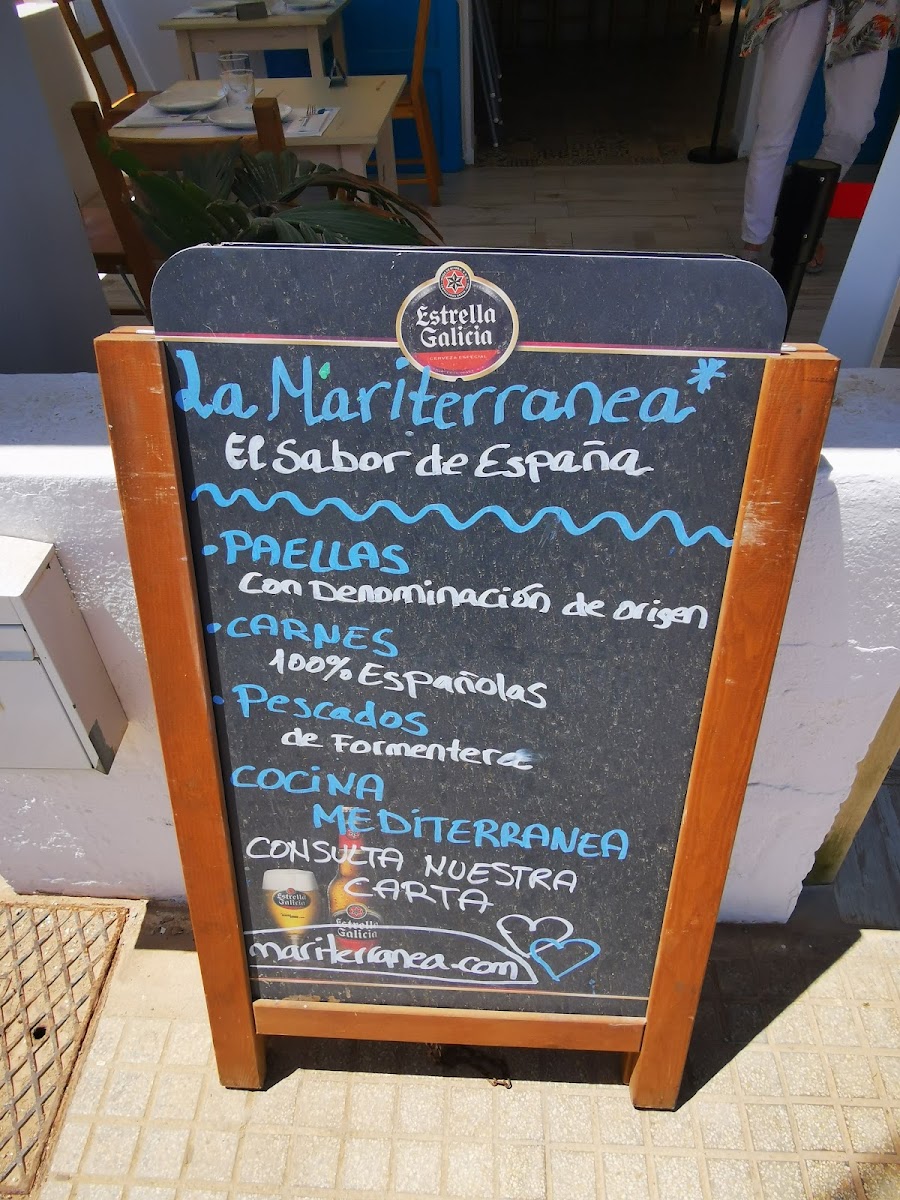 Estrella
Galicia
CERVEZA ESPECIAL
La Mariterranea*
El Sabor de España
• PAELLAS
Con Denominación de origen
• CARNES
100% Españolas
• Pescados
de Formentera
COCINA
MEDITERRANEA
CONSULTA NUESTRA
CARTA
Estrella
Galicia
Estrella
Galicia
mariterranea.com